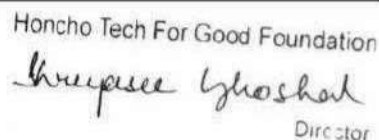 Honcho Tech For Good Foundation
Shreyasee Ghoshal
Director